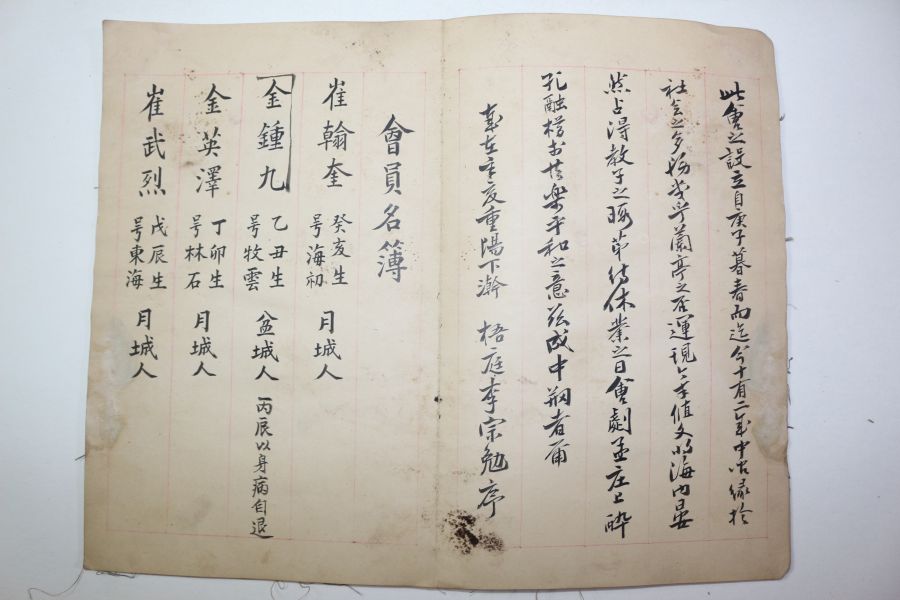 此會之設立自庚子暮春而迄今十有二年中間緣於
社會之多
蘭亭之
運現
海內晏
然占得教子之暇
休業之日會劇孟庄上酔
孔融樽於共樂平和之意玆成中
者爾
歲在辛亥重陽下澣 梧庭李宗勉序
會員名簿
崔翰奎 癸亥生 号海初 月城人
金鍾九 乙丑生 号牧雲 盆城人 丙辰以身病自退
金英澤 丁卯生 号林石 月城人
崔武烈 戊辰生 号東海 月城人